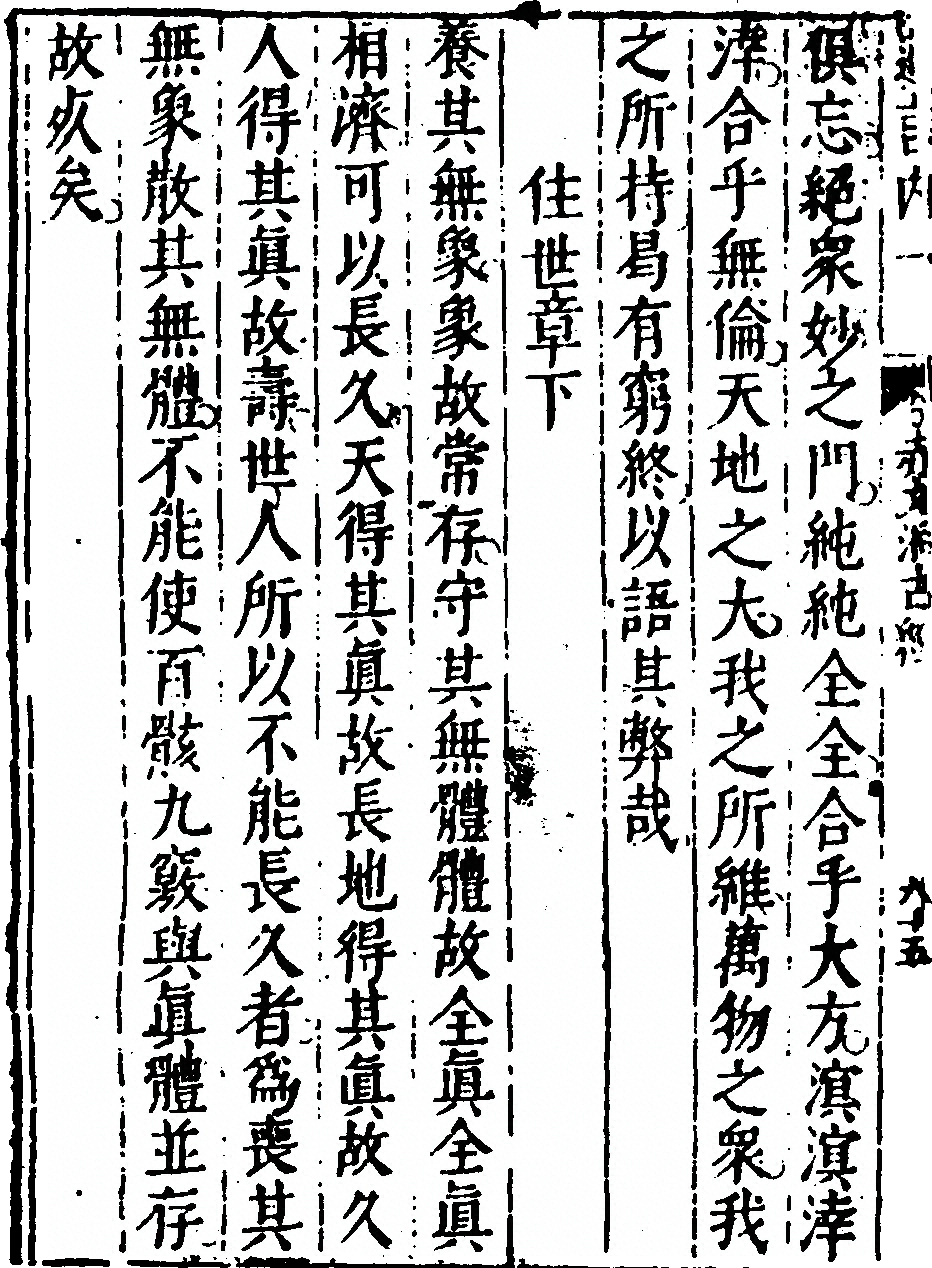 俱忘絕衆妙之門純純全全合乎大方溟溟涬
涬合乎無倫天地之大我之所維萬物之衆我
之所持曷有窮終以語其弊哉
住世章下
養其無象象故常存守其無體體故全眞全眞
相濟可以長久天得其眞故長地得其眞故久
人得其眞故壽世人所以不能長久者爲喪其
無象散其無體不能使百骸九竅與眞體並存
故死矣